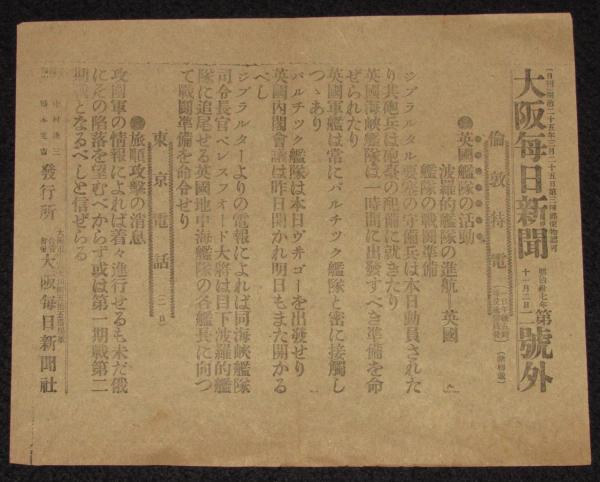 大阪毎日新聞 第二號外
明治卅七年
十一月二日
倫敦特電
●英國艦隊の活動
波羅的艦隊の進航―英國
艦隊の戰鬪準備
ジブラルタル要塞の守備兵は本日動員された
り其砲兵は砲臺の配備に就きたり
英國海峽艦隊は一時間に出發すべき準備を命
ぜられたり
英國軍艦は常にバルチツク艦隊と密に接觸し
つゝあり
バルチツク艦隊は本日ヴ井ゴーを出發せり
英國內閣會議は昨日開かれ明日もまた開かる
べし
ジブラルターよりの電報によれば同海峽艦隊
司令長官ベレスフオード大將は目下波羅的艦
隊に追尾せる英國地中海艦隊の各艦長に向つ
て戰鬪準備を命令せり
東京電話(二日)
●旅順攻擊の消息
攻圍軍の情報によれば着々進行せるも未だ俄
にその陷落を望むべからず或は第一期戰第二
期戰となるべしと信ぜらる
發行所 大阪每日新聞社